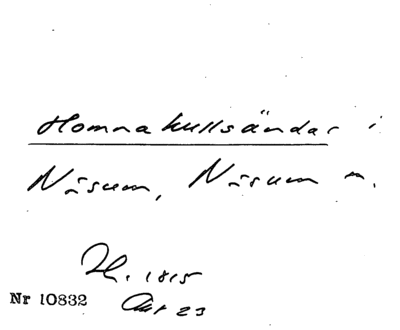 Homnakullsändar i
Näsum, Näsum n.
H. 1815
Nr 10832 Akt 23